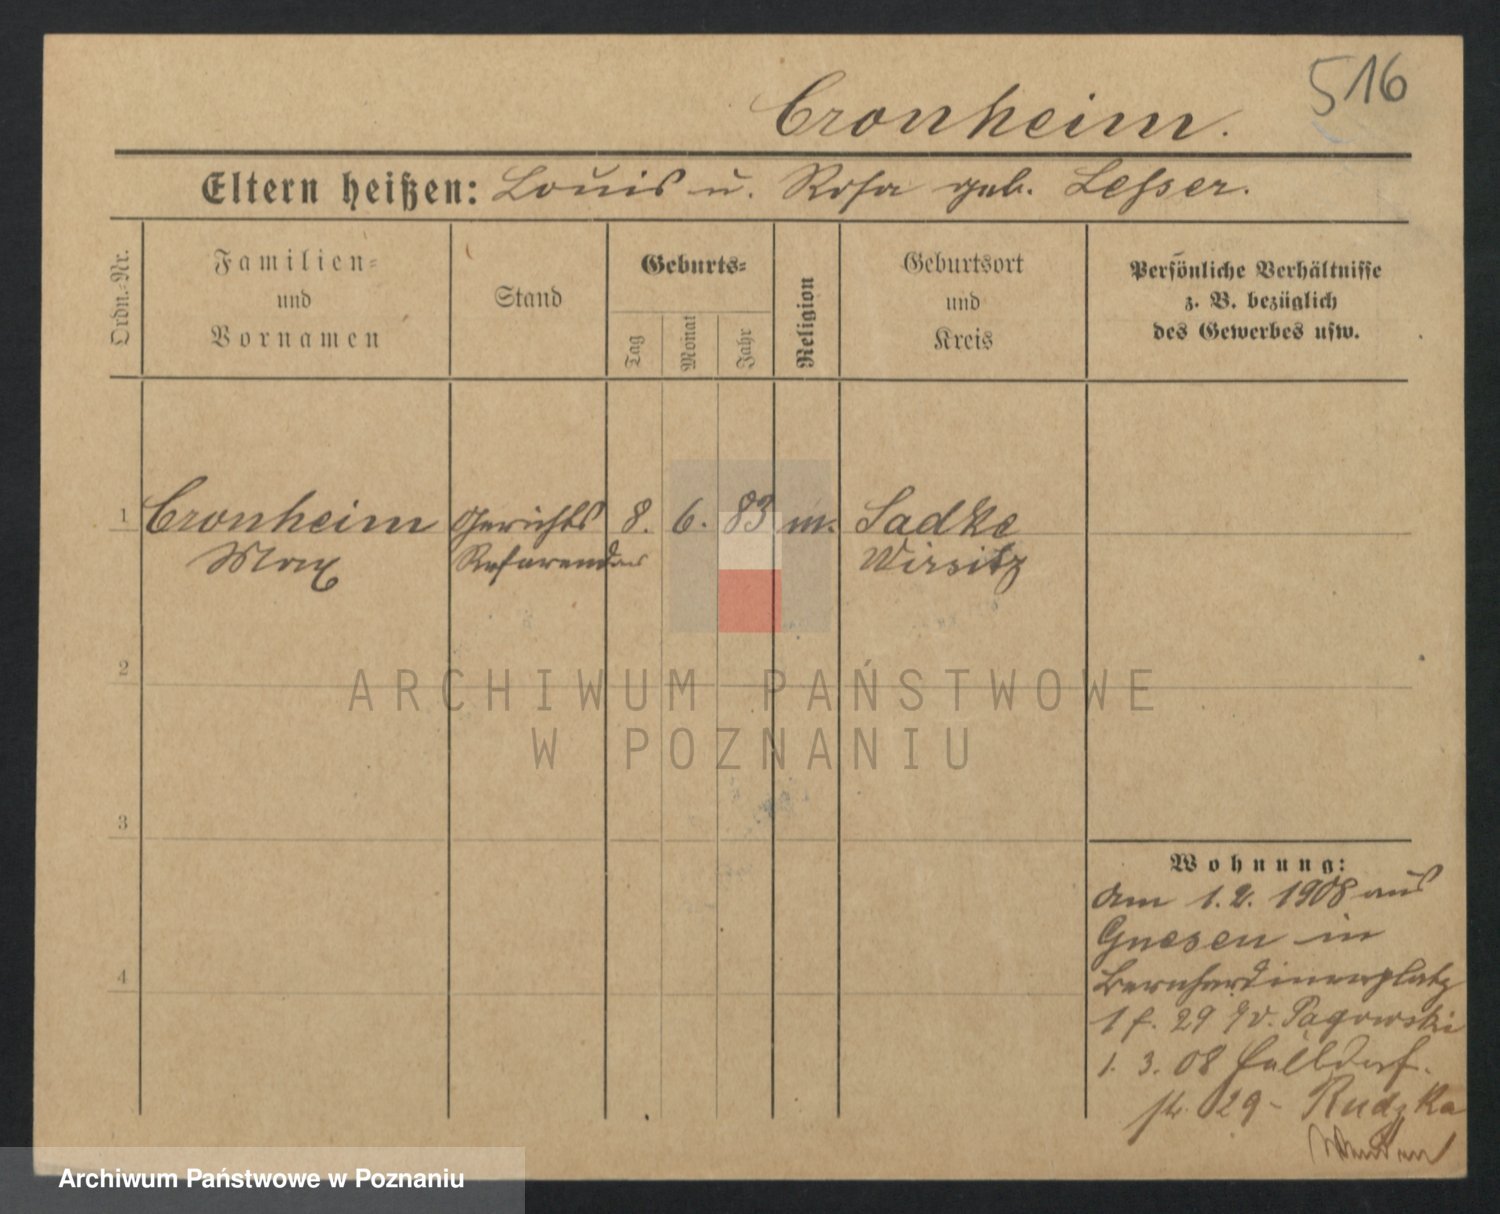 516
Cronheim.
Eltern heißen: Louis u. Rosa geb. Lesser.
Ordn.-Nr.
Familien-
und
Vornamen
Stand
Geburts-
Tag
Monat
Jahr
Religion
Geburtsort
und
Kreis
Persönliche Verhältnisse
z. B. bezüglich
des Gewerbes usw.
1 Cronheim Gerichts 8. 6. 83 m. Sadke
Max Referendar Wirsitz
2
ARCHIWUM PAŃSTWOWE
W POZNANIU
3
4
Wohnung:
am 1.2. 1908 aus
Gnesen in
Bernhardinerplatz
1 f. 29 Pągowski
1. 3. 08 Halldorf-
str. 29 - Rudzka
Wenden
Archiwum Państwowe w Poznaniu